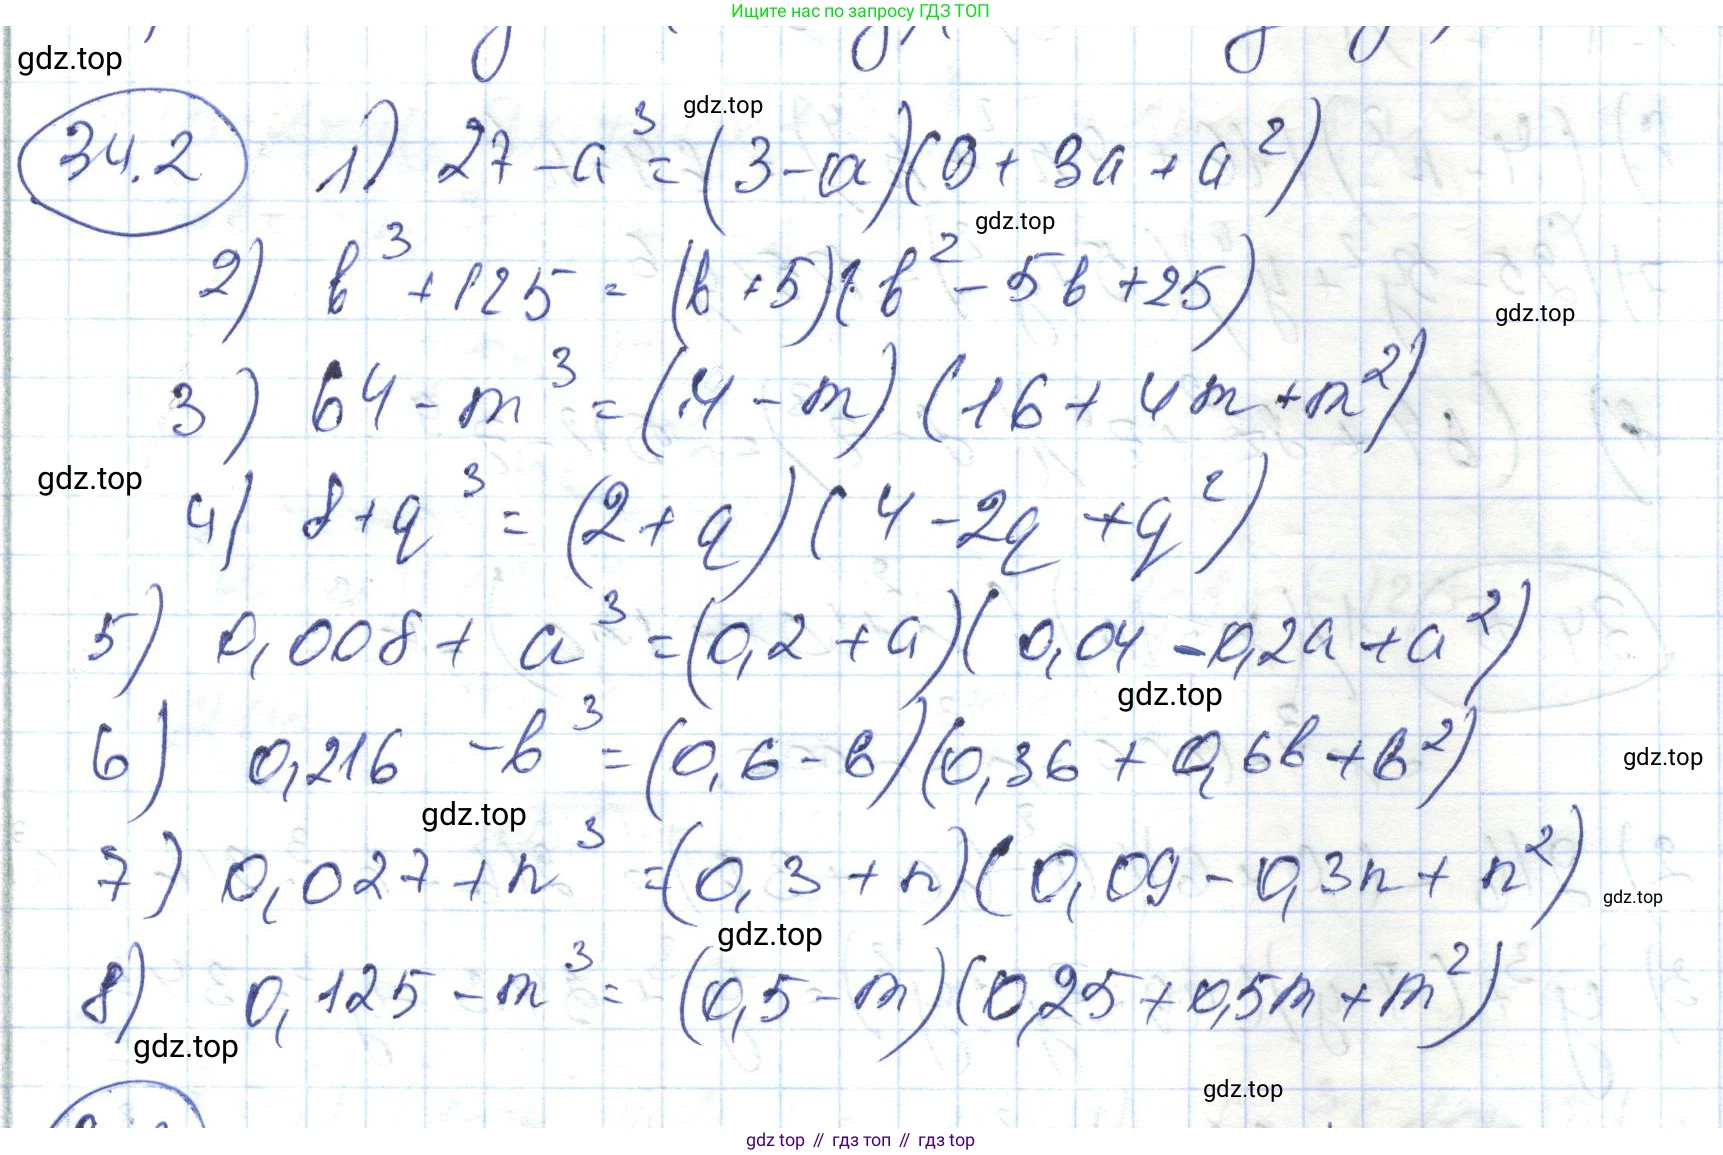 Ищите нас по запросу ГДЗ ТОП
gdz.top
34.2 1) 27 - a³ = (3 - a)(9 + 3a + a²)
gdz.top
gdz.top
2) b³ + 125 = (b + 5)(b² - 5b + 25)
gdz.top
3) 64 - m³ = (4 - m) (16 + 4m + m²).
gdz.top
4) 8 + q³ = (2 + q) (4 - 2q + q²)
5) 0,008 + a³ = (0,2 + a)(0,04 - 0,2a + a²)
gdz.top
6) 0,216 - b³ = (0,6 - b)(0,36 + 0,6b + b²)
gdz.top
gdz.top
7) 0,027 + n³ = (0,3 + n)(0,09 - 0,3n + n²)
gdz.top
gdz.top
8) 0,125 - m³ = (0,5 - m)(0,25 + 0,5m + m²)
gdz.top
gdz.top
gdz top // гдз топ // гдз top